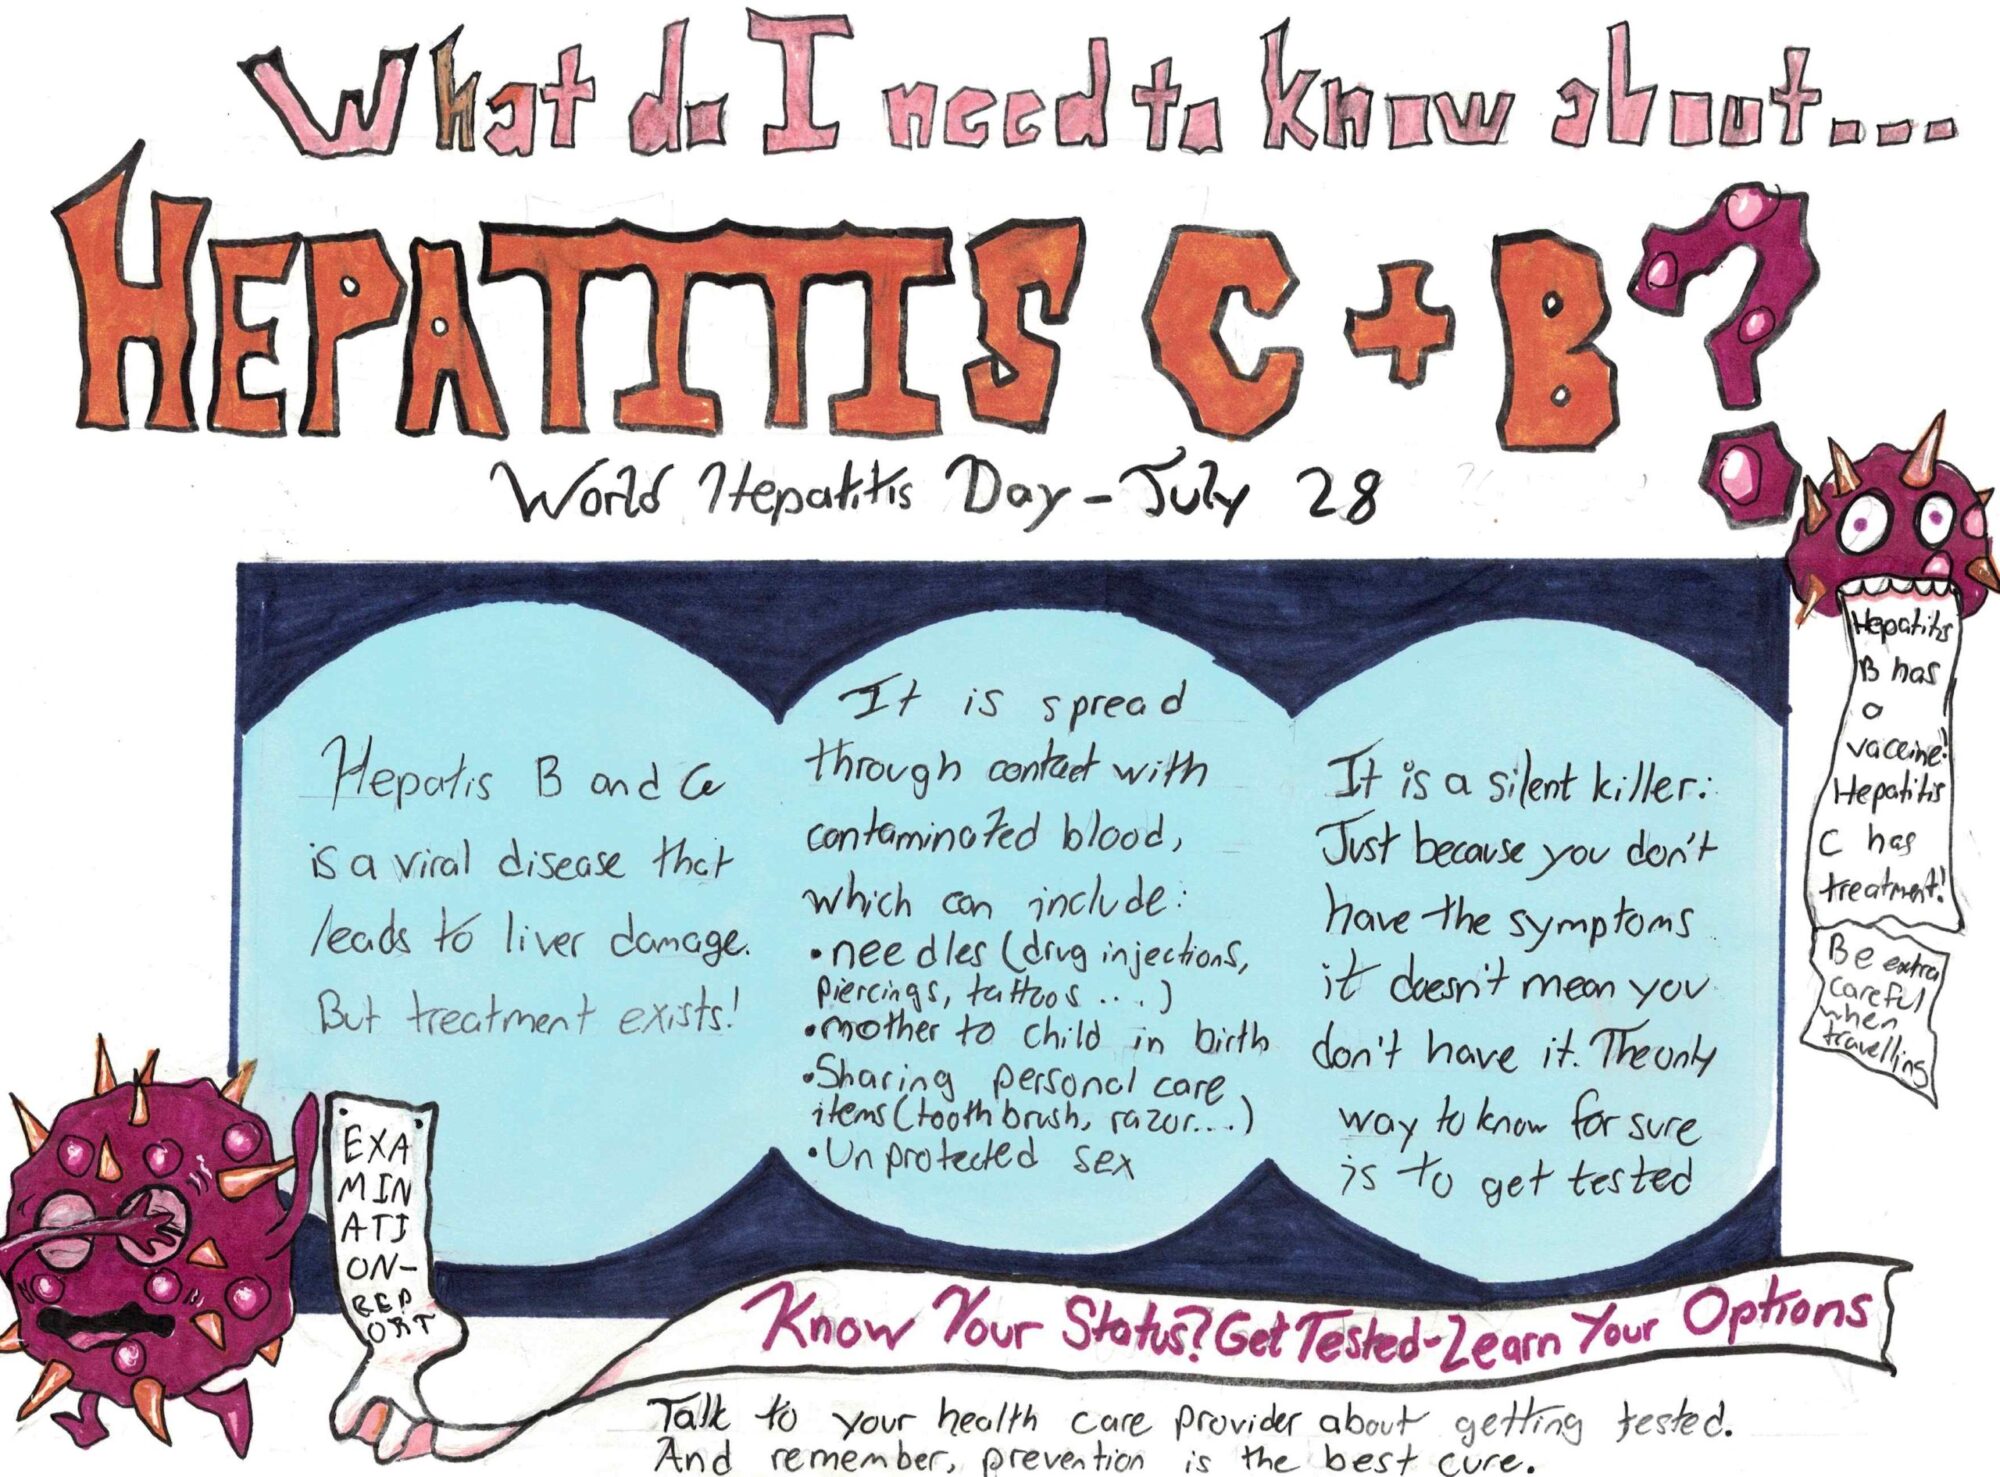 What do I need to know about...
HEPATITIS C + B?
World Hepatitis Day - July 28
Hepatis B and C
is a viral disease that
leads to liver damage.
But treatment exists!
It is spread
through contact with
contaminated blood,
which can include:
• needles (drug injections,
piercings, tattoos ....)
• mother to child in birth
• Sharing personal care
items (toothbrush, razor...)
• Unprotected sex
It is a silent killer:
Just because you don't
have the symptoms
it doesn't mean you
don't have it. The only
way to know for sure
is to get tested
Hepatitis
B has
a
vaccine!
Hepatitis
C has
treatment!
Be extra
careful
when
travelling
EXA
MIN
ATI
ON-
REP
ORT
Know Your Status? Get Tested - Learn Your Options
Talk to your health care provider about getting tested.
And remember, prevention is the best cure.